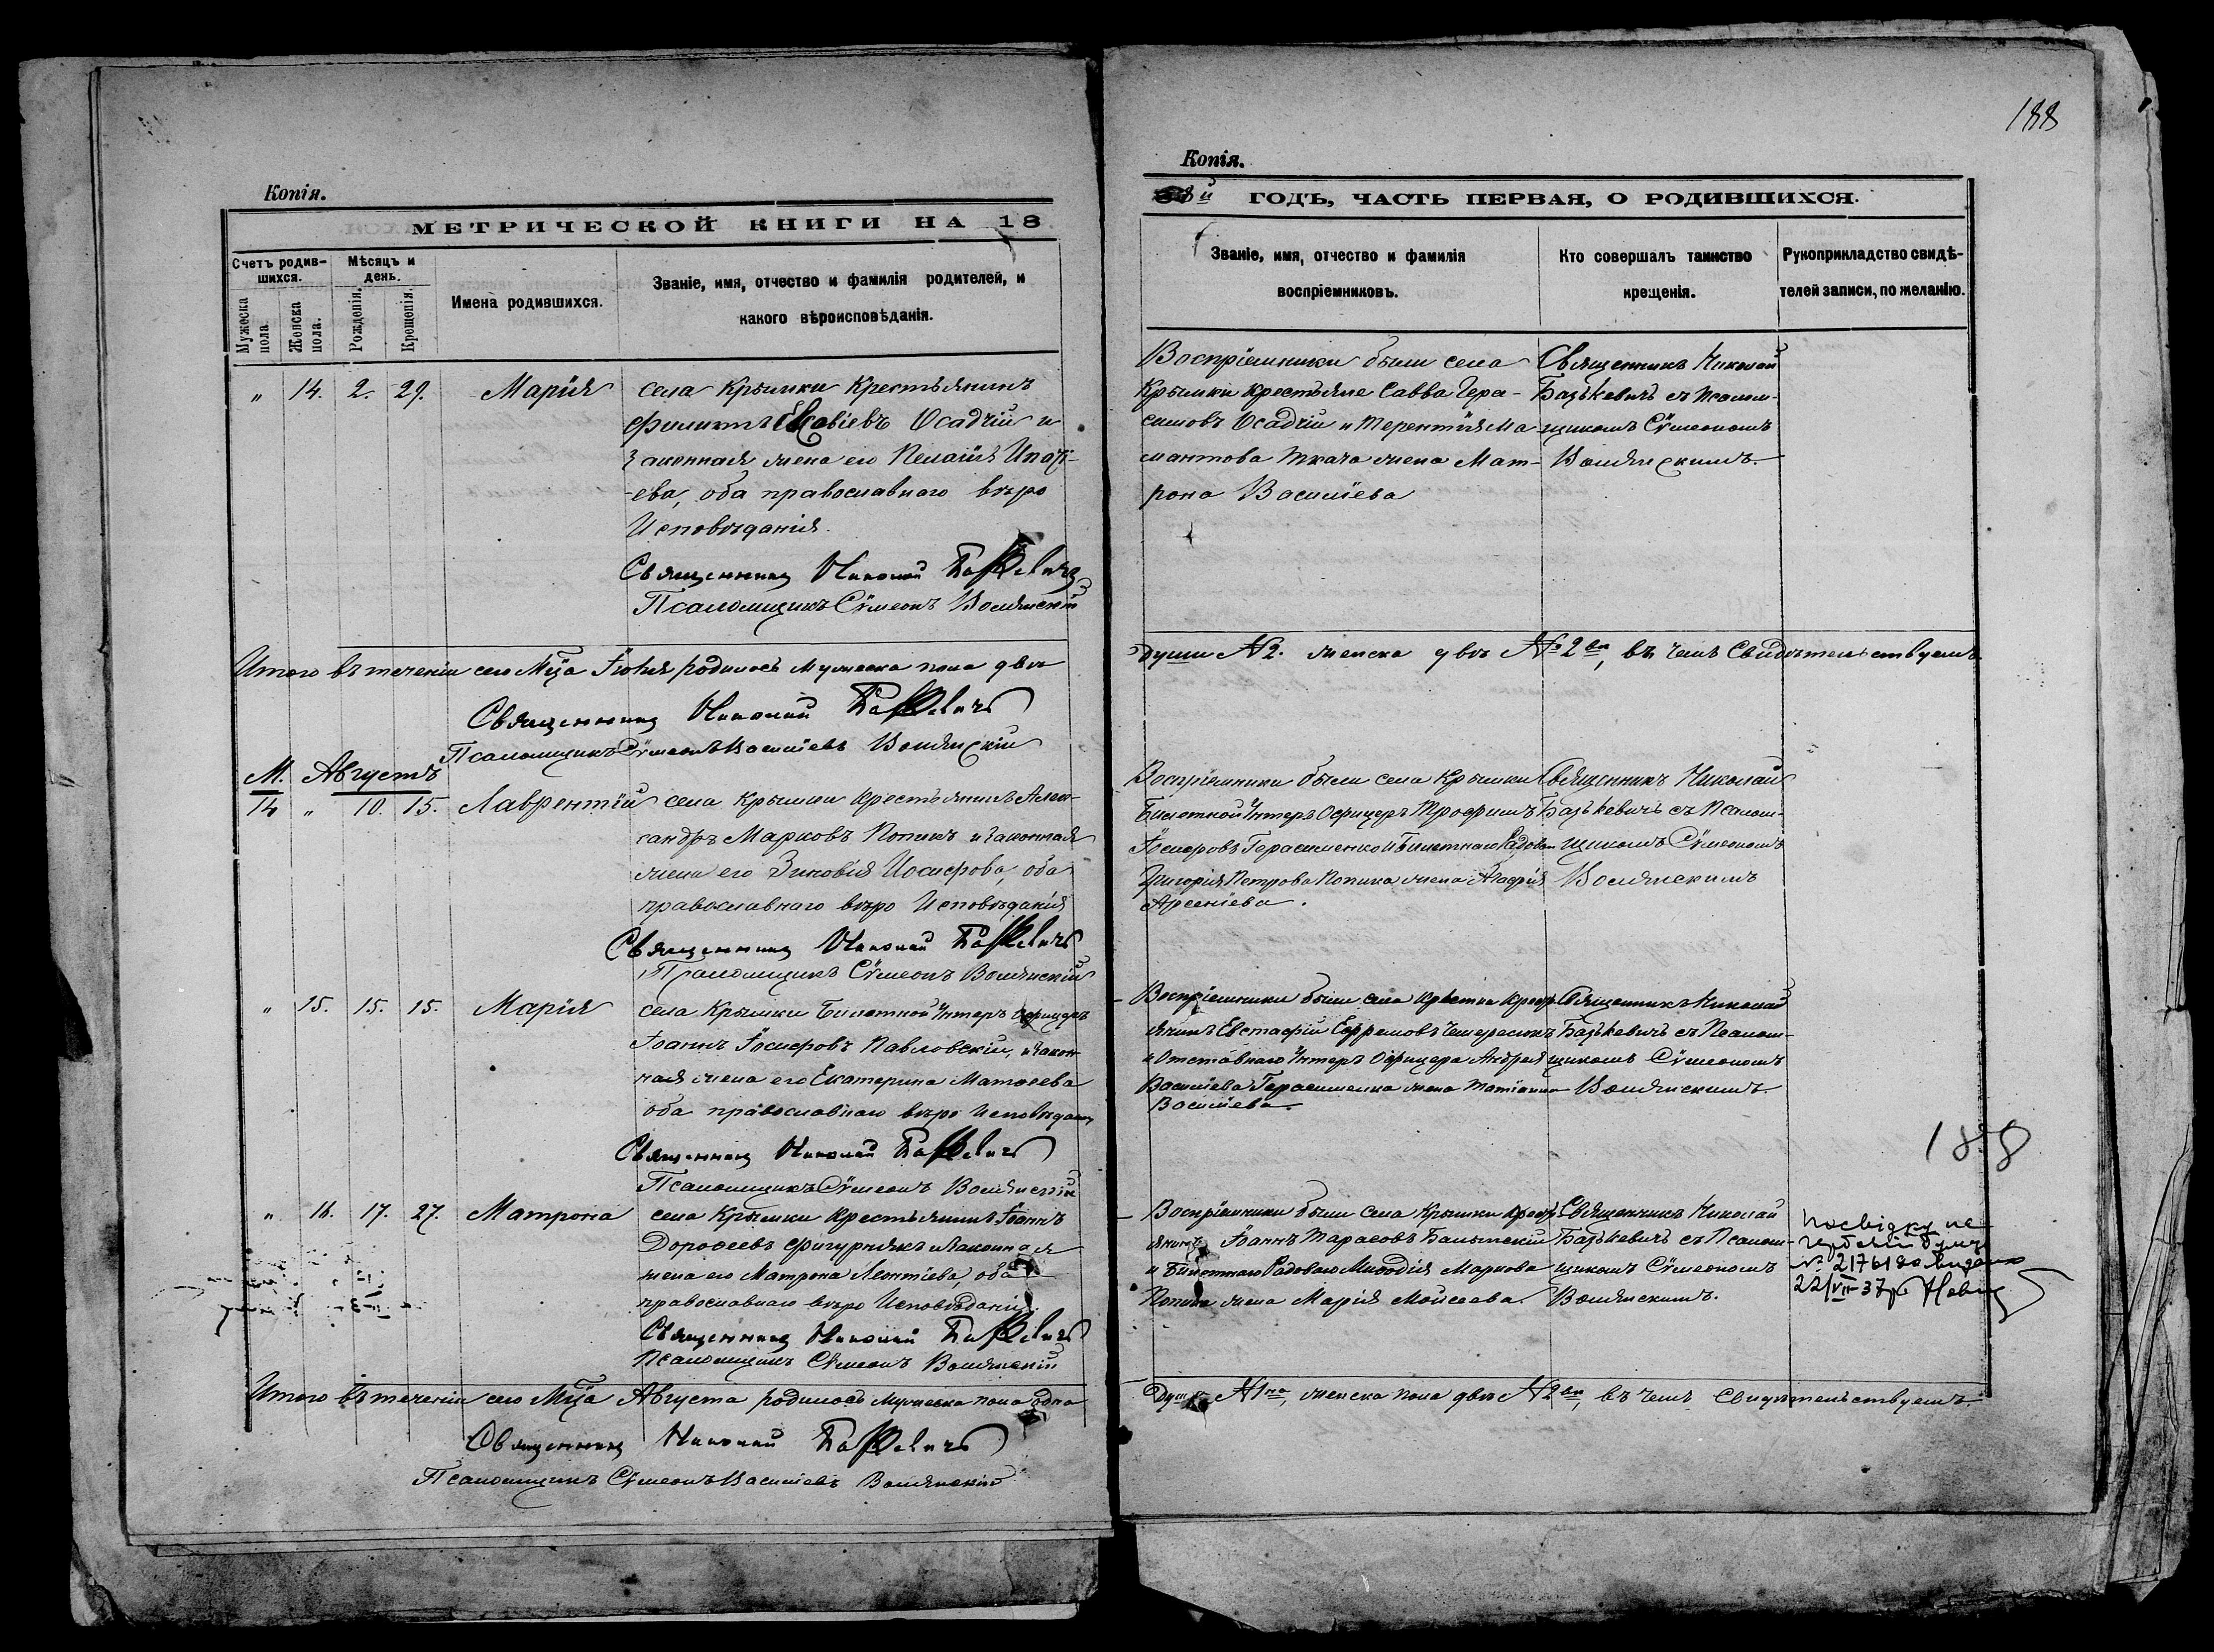 Копія.
МЕТРИЧЕСКОЙ КНИГИ НА 18
Счетъ родив-
шихся.
Мѣсяцъ и
день.
Мужеска
пола.
Женска
пола.
Рожденія.
Крещенія.
Имена родившихся.
Званіе, имя, отчество и фамилія родителей, и
какого вѣроисповѣданія.
" 14. 2. 29. Марія
села Крымки Крестьянинъ
Филиппъ Осадчій и
законная жена его Пелагія Ипаті-
ева, оба православнаго вѣро
Исповѣданія.
Священникъ Николай Базькевичъ
Псаломщикъ Сѵмеонъ Волянскій
Итого въ теченіи сего Мца Іюля родилось мужеска пола двѣ
Священникъ Николай Базькевичъ
Псаломщикъ Сѵмеонъ Васильевъ Волянскій
М. Августъ
14 " 10. 15. Лаврентій
села Крымки крестьянинъ Алек-
сандръ Марковъ Попикъ и законная
жена его Зиновія Иосифова, оба
православнаго вѣро Исповѣданія
Священникъ Николай Базькевичъ
Псаломщикъ Сѵмеонъ Волянскій
" 15. 15. 15. Марія
села Крымки Билетной Унтеръ Офицеръ
Іоаннъ Іосифовъ Павловскій, и закон-
ная жена его Екатерина Матѳеева
оба православнаго вѣро Исповѣдан
Священникъ Николай Базькевичъ
Псаломщикъ Сѵмеонъ Волянскій
" 16. 17. 27. Матрона
села Крымки Крестьянинъ Іоаннъ
Дороѳеевъ Фигурнякъ и законная
жена его Матрона Леонтіева, оба
православнаго вѣро Исповѣданія.
Священникъ Николай Базькевичъ
Псаломщикъ Сѵмеонъ Волянскій
Итого въ теченіи сего Мца Августа родилось мужеска пола одна
Священникъ Николай Базькевичъ
Псаломщикъ Сѵмеонъ Васильевъ Волянскій
188
Копія.
8й ГОДЪ, ЧАСТЬ ПЕРВАЯ, О РОДИВШИХСЯ.
Званіе, имя, отчество и фамилія
воспріемниковъ.
Кто совершалъ таинство
крещенія.
Рукоприкладство свидѣ-
телей записи, по желанію.
Воспріемники были села
Крымки крестьяне Савва Гера-
симовъ Осадчій и Терентія Ма
мантова Ткача жена Мат-
рона Василіева
Священникъ Николай
Базькевичъ съ Псалом-
щикомъ Сѵмеономъ
Волянскимъ.
души №2. женска двѣ №2ва, въ чемъ Свидѣтельствуемъ
Воспріемники были села Крымки
Билетной Унтеръ Офицеръ Трофимъ
Іосифовъ Герасименко и Билетнаго Рядоваго
Григорія Петрова Попика жена Агафія
Арсеніева.
Священникъ Николай
Базькевичъ съ Псалом-
щикомъ Сѵмеономъ
Волянскимъ
Воспріемники были села
янинъ Евстафій Ефремовъ
и Отставнаго Унтеръ Офицера Андрея
Василіева Герасименка жена Татіанна
Василіева.
Священникъ Николай
Базькевичъ съ Псалом-
щикомъ Сѵмеономъ
Волянскимъ.
188
Воспріемники были села Крымки Крест
янинъ Іоаннъ Тарасовъ
и Билетнаго Рядоваго Меѳодія Маркова
Попика жена Марія Моисеева.
Священникъ Николай
Базькевичъ съ Псалом-
щикомъ Сѵмеономъ
Волянскимъ.
№ 21761
22/VII-37р
Душа №1на, женска пола двѣ №2ва, въ чемъ Свидѣтельствуемъ.